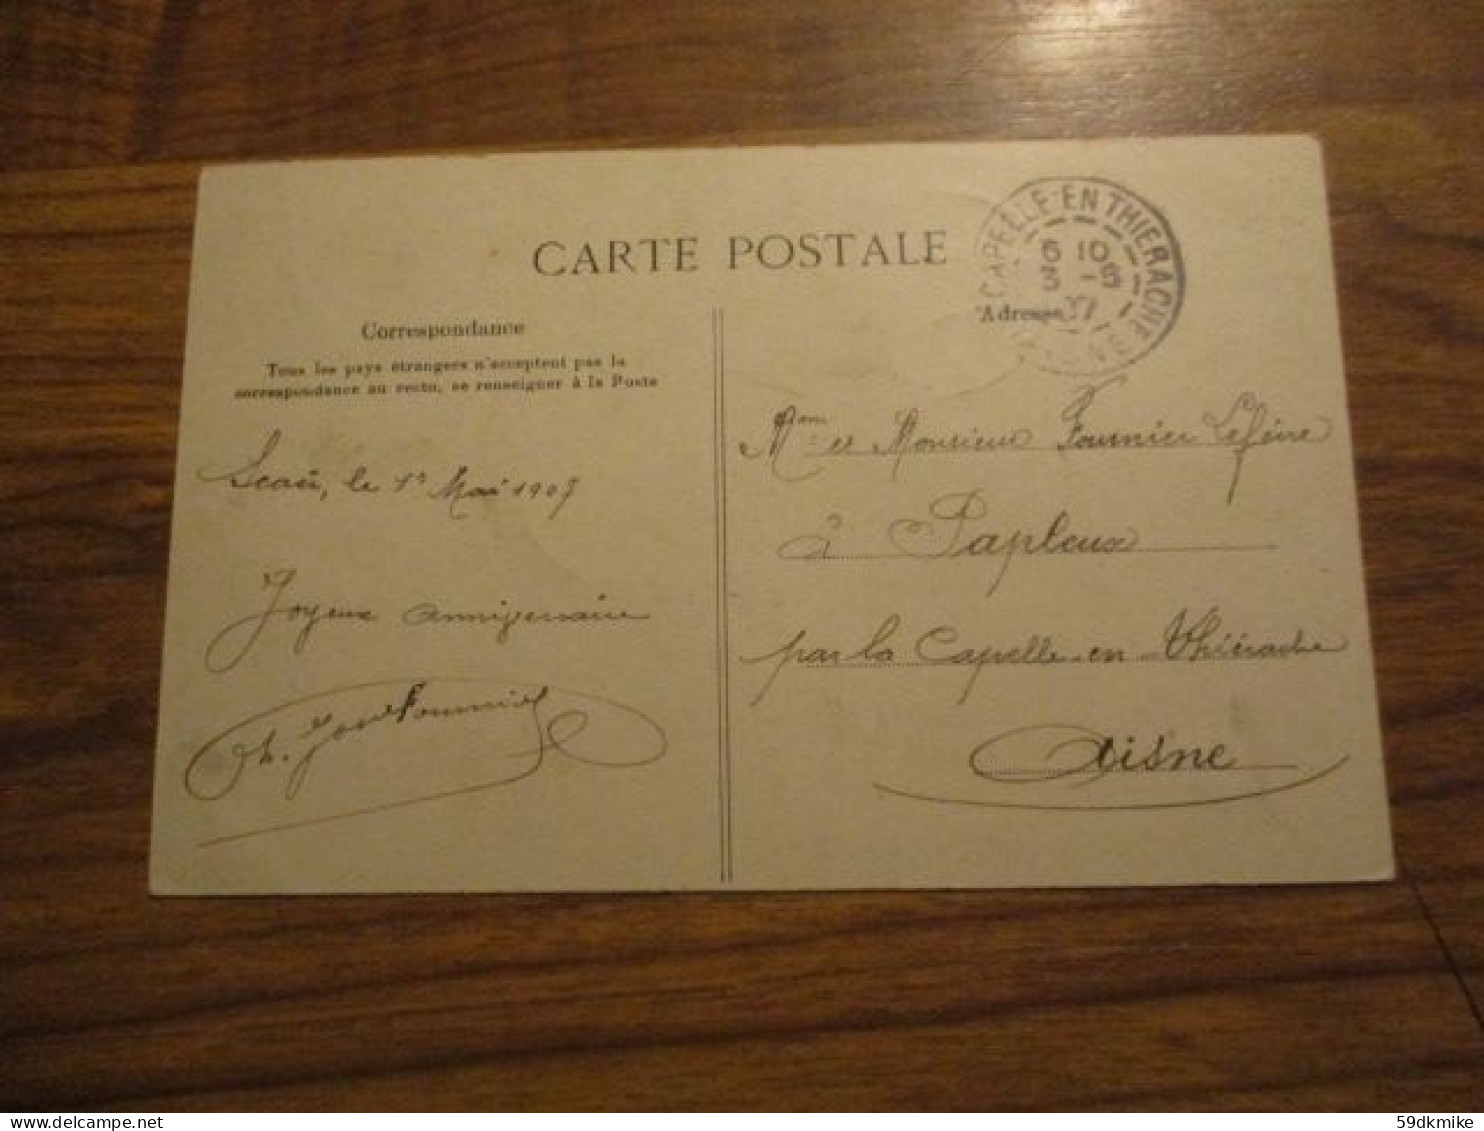 CARTE POSTALE
CAPELLE-EN-THIERACHE
6 10
3 -5
07
AISNE
Correspondance
Tous les pays étrangers n'acceptent pas la
correspondance au recto, se renseigner à la Poste
Adresse
le 1er Mai 1907
Joyeux anniversaire
Mdme et Monsieur Fournier Lefèvre
à Papleux
par la Capelle-en-Thiérache
Aisne
59dkmike